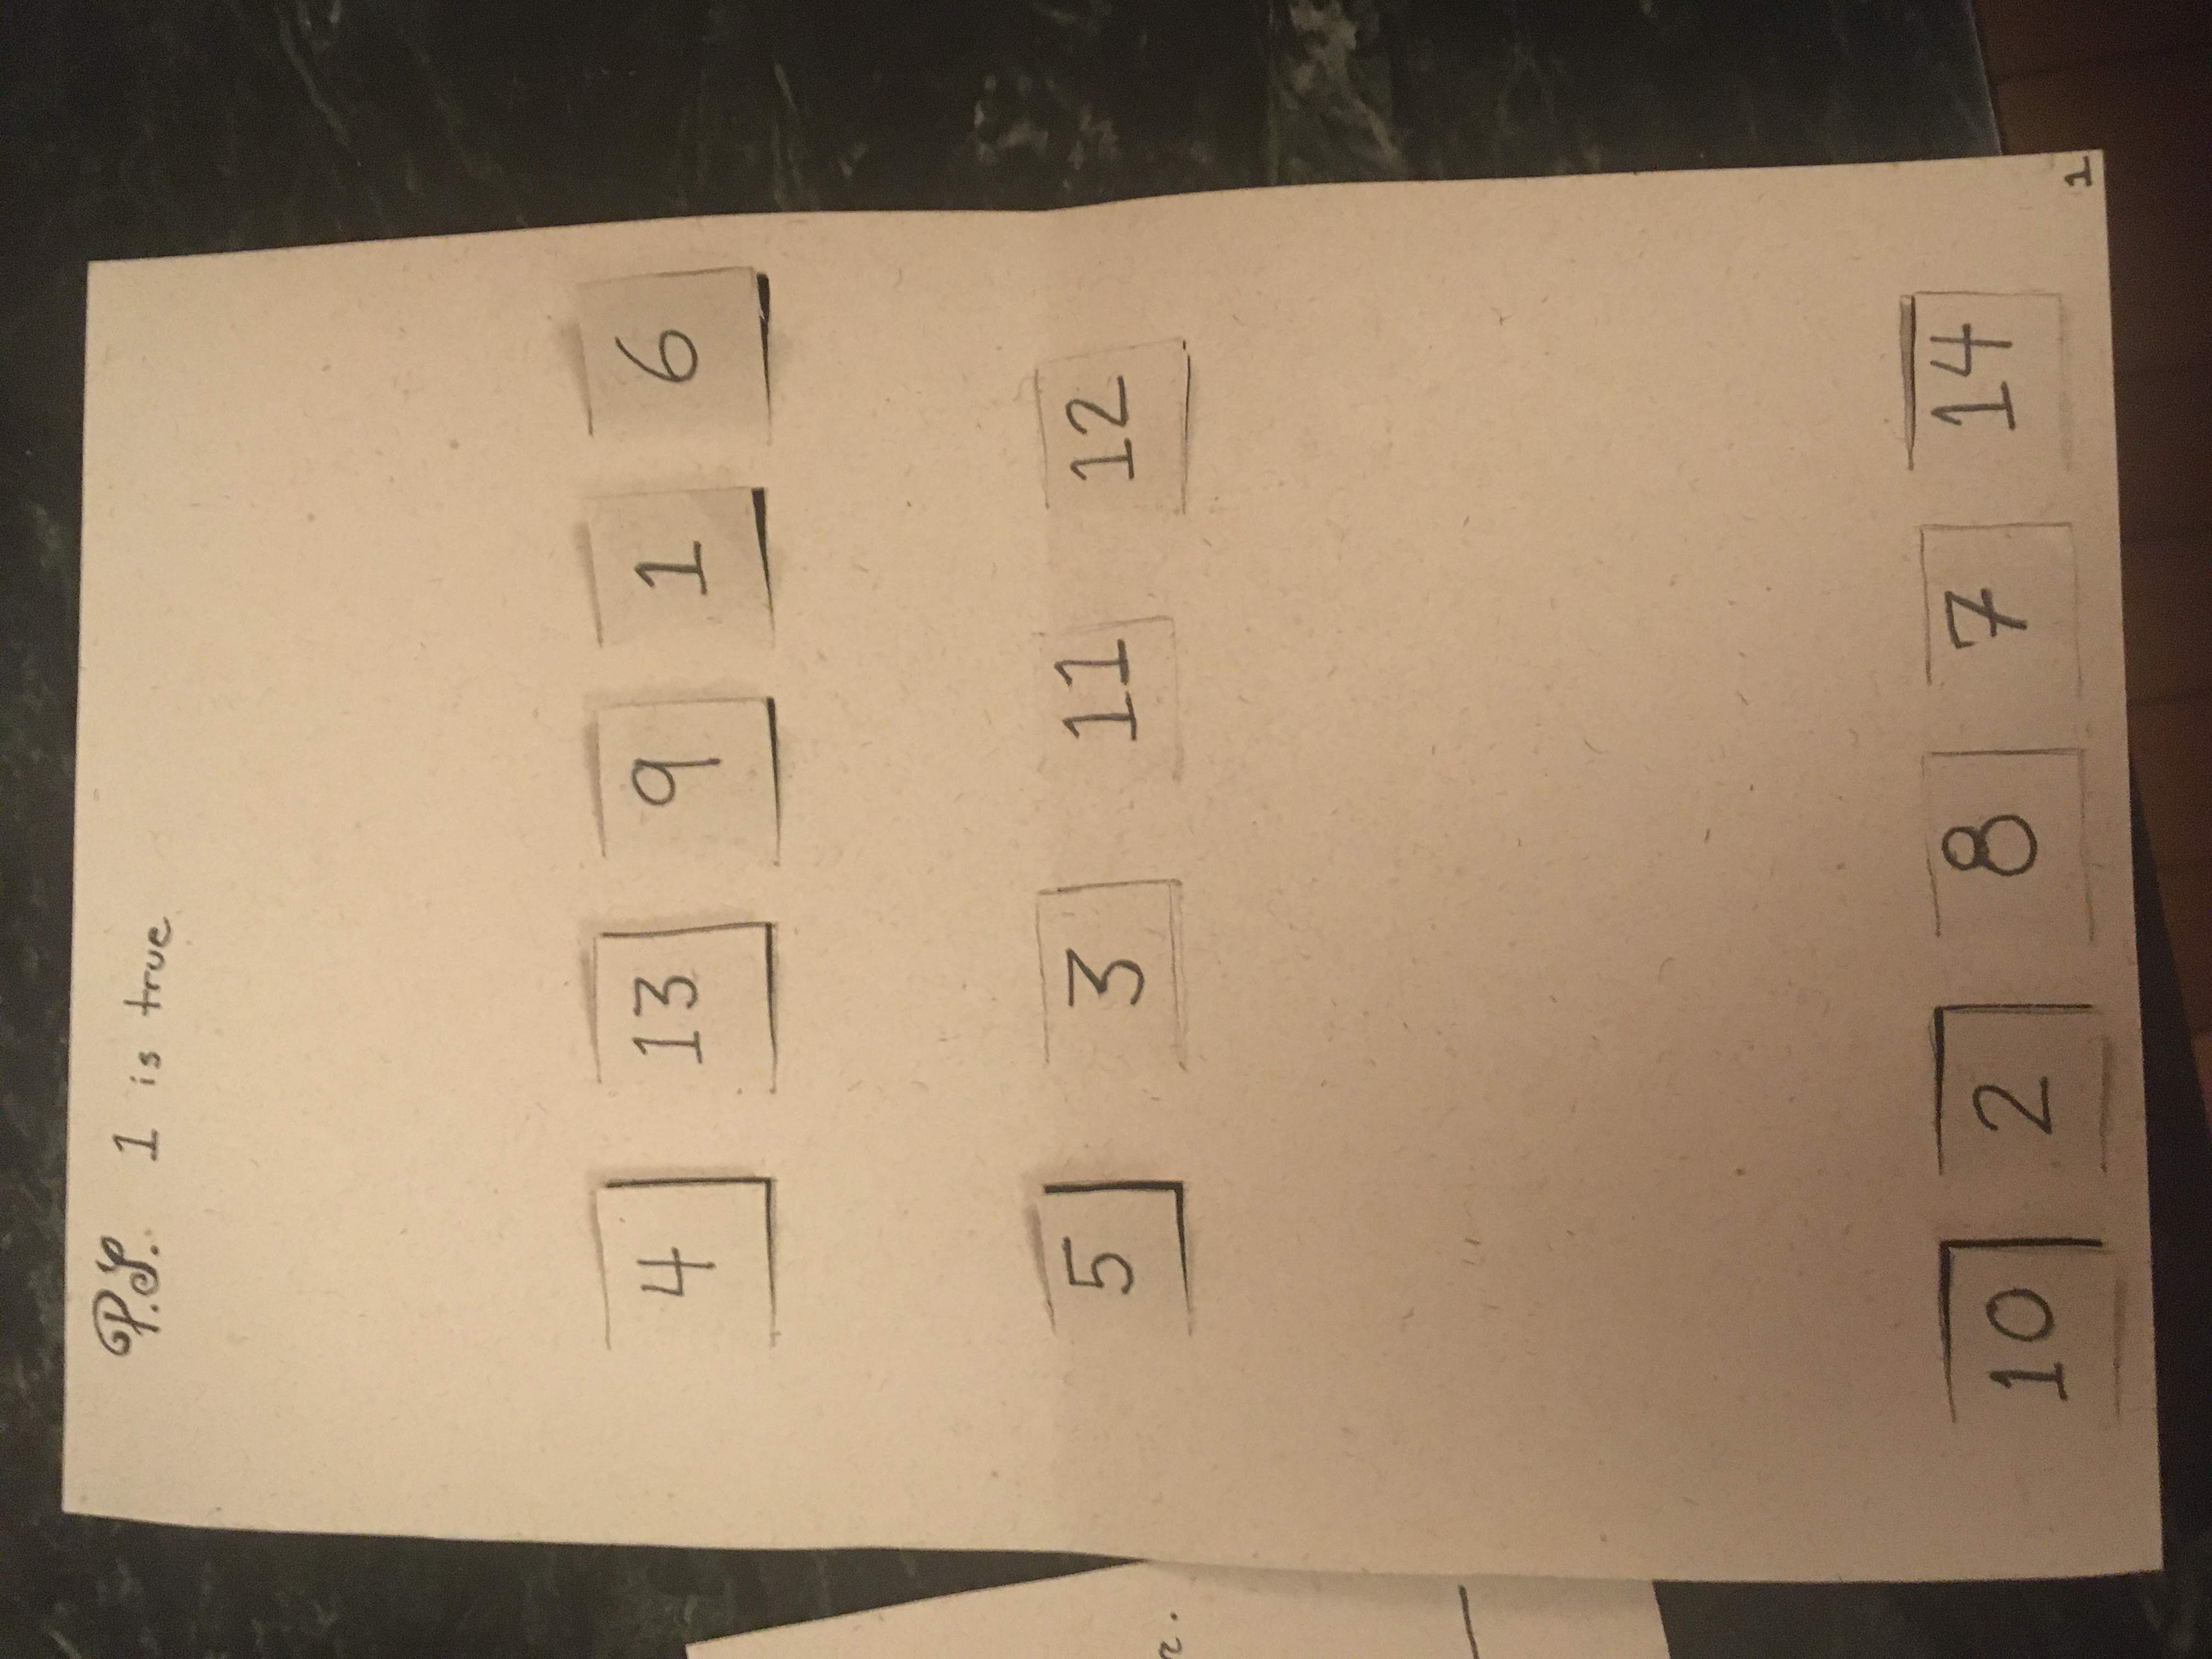 P.S. 1 is true
4 13 9 1 6
5 3 11 12
10 2 8 7 14
1